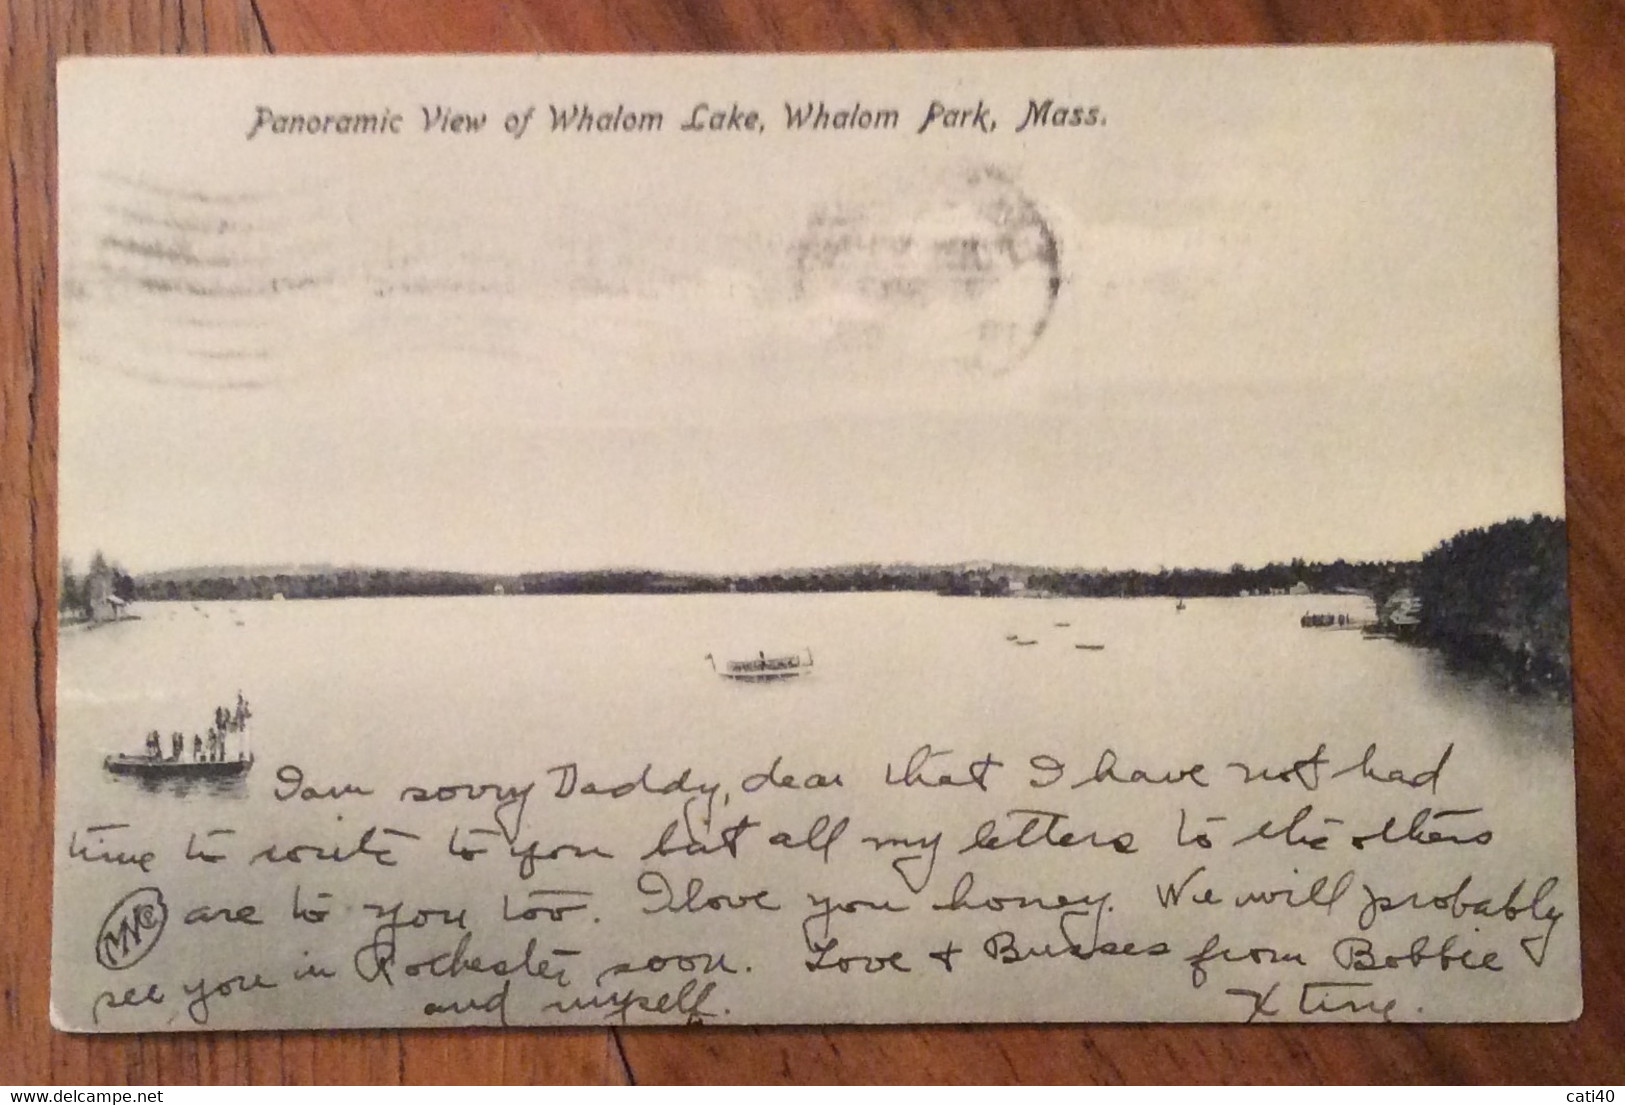 Panoramic View of Whalom Lake, Whalom Park, Mass.
I am sorry Daddy, dear that I have not had
time to write to you but all my letters to the others
are to you too. I love you honey. We will probably
see you in Rochester soon. Love + Busses from Bobbie
and myself. Xtine.
www.delcampe.net
cati40